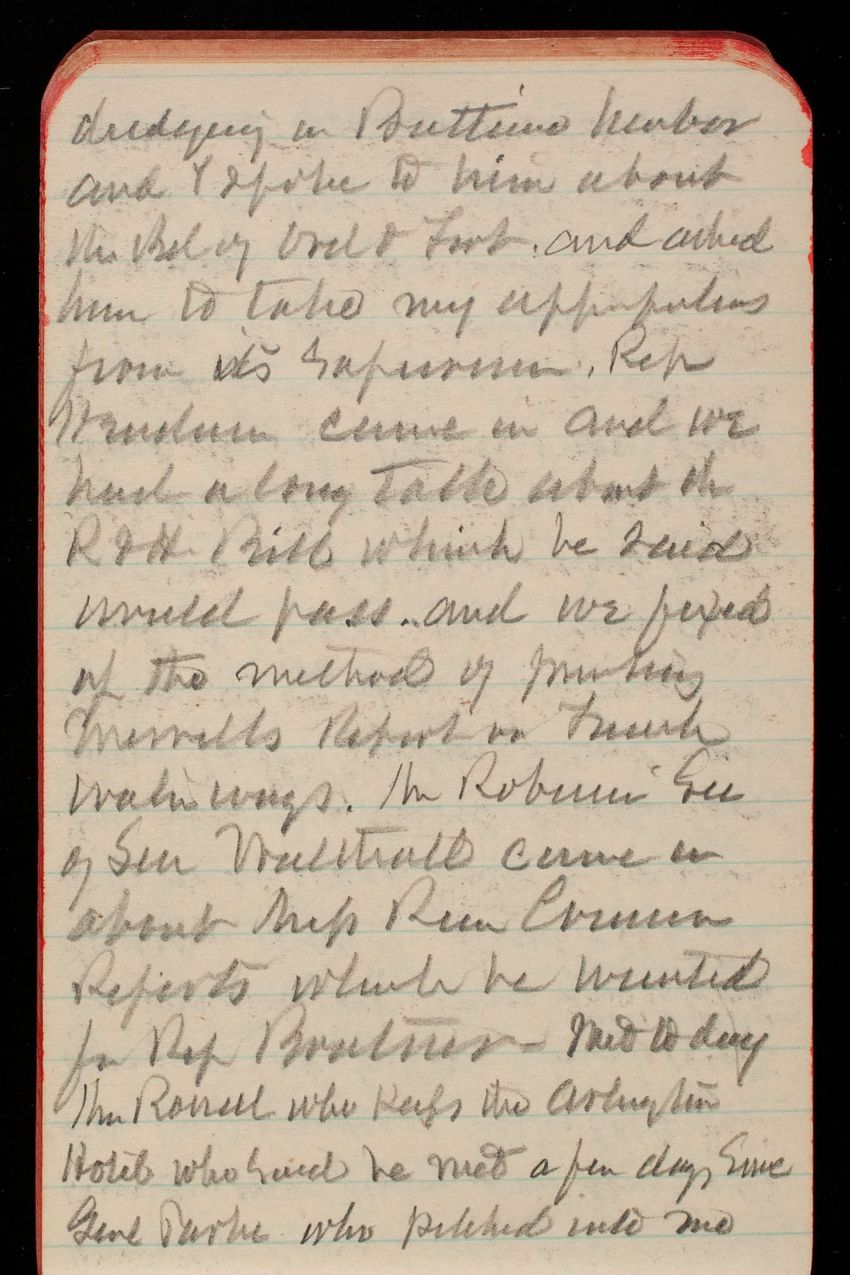 dredging in Baltimore harbor
and I spoke to him about
the Bd of Ord & Fort. and asked
him to take my
from its Supervision. Rep
Henderson came in and we
had a long talk about the
R & H Bill which he said
would pass. and we fixed
up the method of printing
Merrells Report on French
Waterways. Mr Robinson Sec
of Sen Walthall came in
about Miss River Commn
Reports which he wanted
for Rep Boatner - Met to day
Mr who keeps the Arlington
Hotel who said he met a few days since
Genl Parke who pitched into me